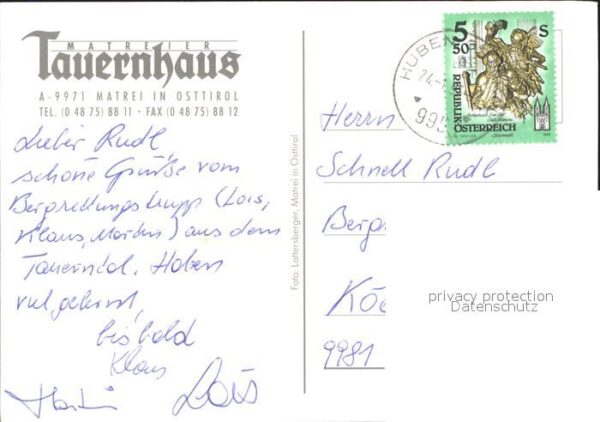 MATREIER
Tauernhaus
A-9971 MATREI IN OSTTIROL
TEL. (0 48 75) 88 11 · FAX (0 48 75) 88 12
Lieber Rudl,
schöne Grüße vom
Bergrettungstrupp (Lois,
Klaus, Martin) aus dem
Tauerntal. Haben
viel gelernt,
bis bald
Klaus
Martin Lois
Foto: Lottersberger, Matrei in Osttirol
HUBEN
24-
995
5 50 S
REPUBLIK
ÖSTERREICH
Herrn
Schnell Rudl
Berg
Kö
9981
privacy protection
Datenschutz